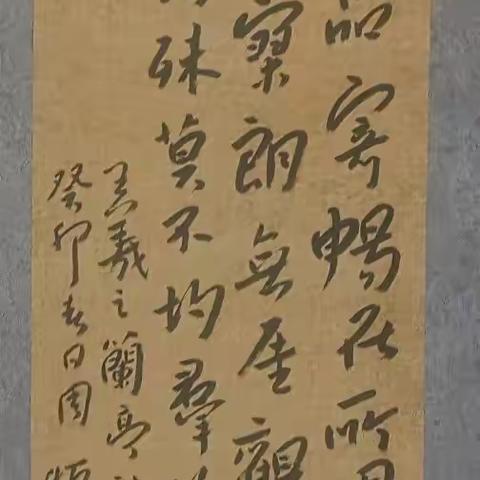 品寄暢在所
寥朗無厓觀
殊莫不均羣
王羲之蘭亭
癸卯春日周